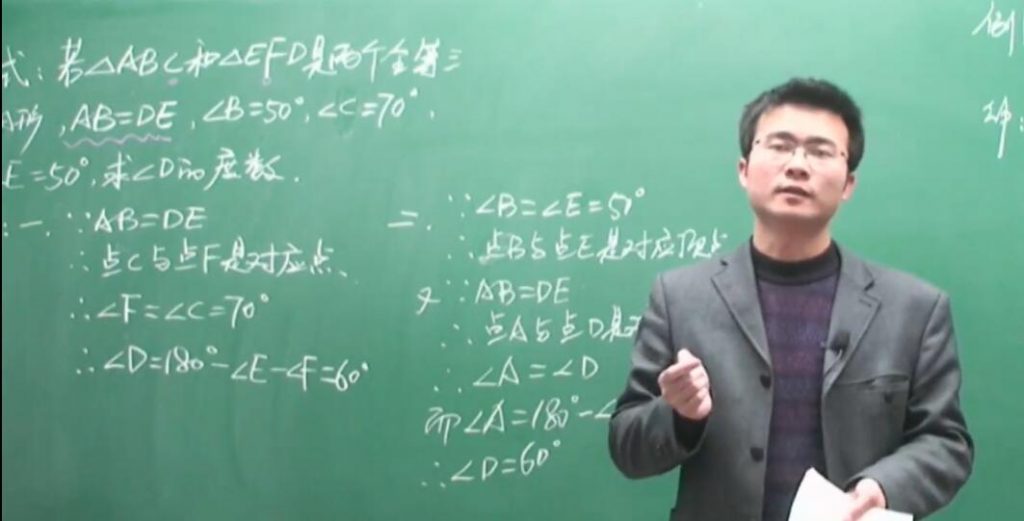 式:若△ABC和△EFD是两个全等三
角形,AB=DE,∠B=50°,∠C=70°,
E=50°,求∠D的度数.
:一.∵AB=DE
∴点C与点F是对应点、
∴∠F=∠C=70°
∴∠D=180°-∠E-∠F=60°
二.∵∠B=∠E=50°
∴点B与点E是对应顶点
又∵AB=DE
∴点A与点D是对
∴∠A=∠D
而∠A=180°-∠
∴∠D=60°
例